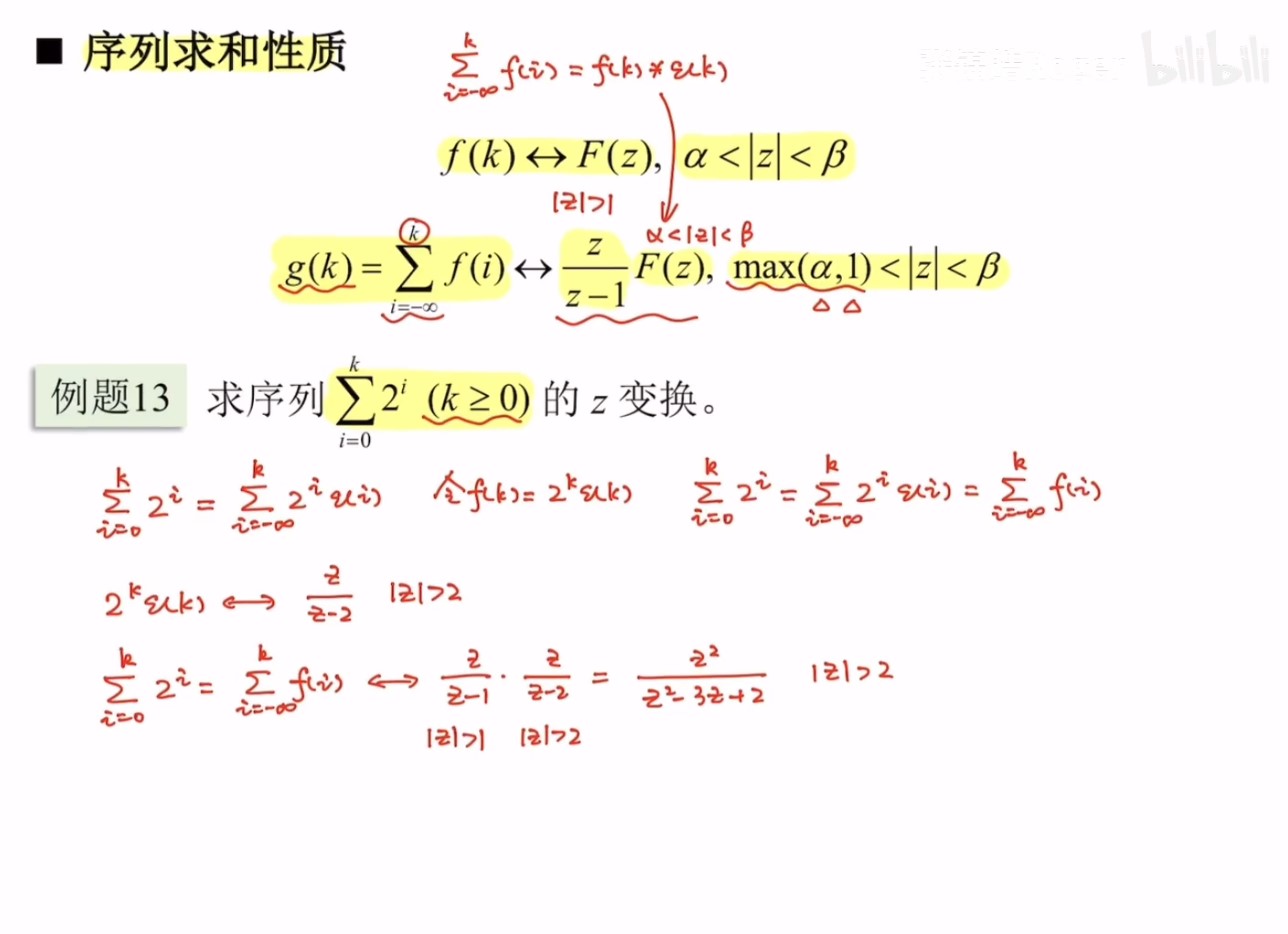 ■ 序列求和性质
∑_{i=-∞}^{k} f(i) = f(k) * ε(k)
bilibili
f(k) ↔ F(z), α < |z| < β
|z|>1
α<|z|<β
g(k) = ∑_{i=-∞}^{k} f(i) ↔ z/(z-1) F(z), max(α,1) < |z| < β
△ △
例题13 求序列 ∑_{i=0}^{k} 2^i (k ≥ 0) 的 z 变换。
∑_{i=0}^{k} 2^i = ∑_{i=-∞}^{k} 2^i ε(i) 令f(k) = 2^k ε(k) ∑_{i=0}^{k} 2^i = ∑_{i=-∞}^{k} 2^i ε(i) = ∑_{i=-∞}^{k} f(i)
2^k ε(k) ↔ z/(z-2) |z|>2
∑_{i=0}^{k} 2^i = ∑_{i=-∞}^{k} f(i) ↔ z/(z-1) · z/(z-2) = z²/(z²-3z+2) |z|>2
|z|>1 |z|>2